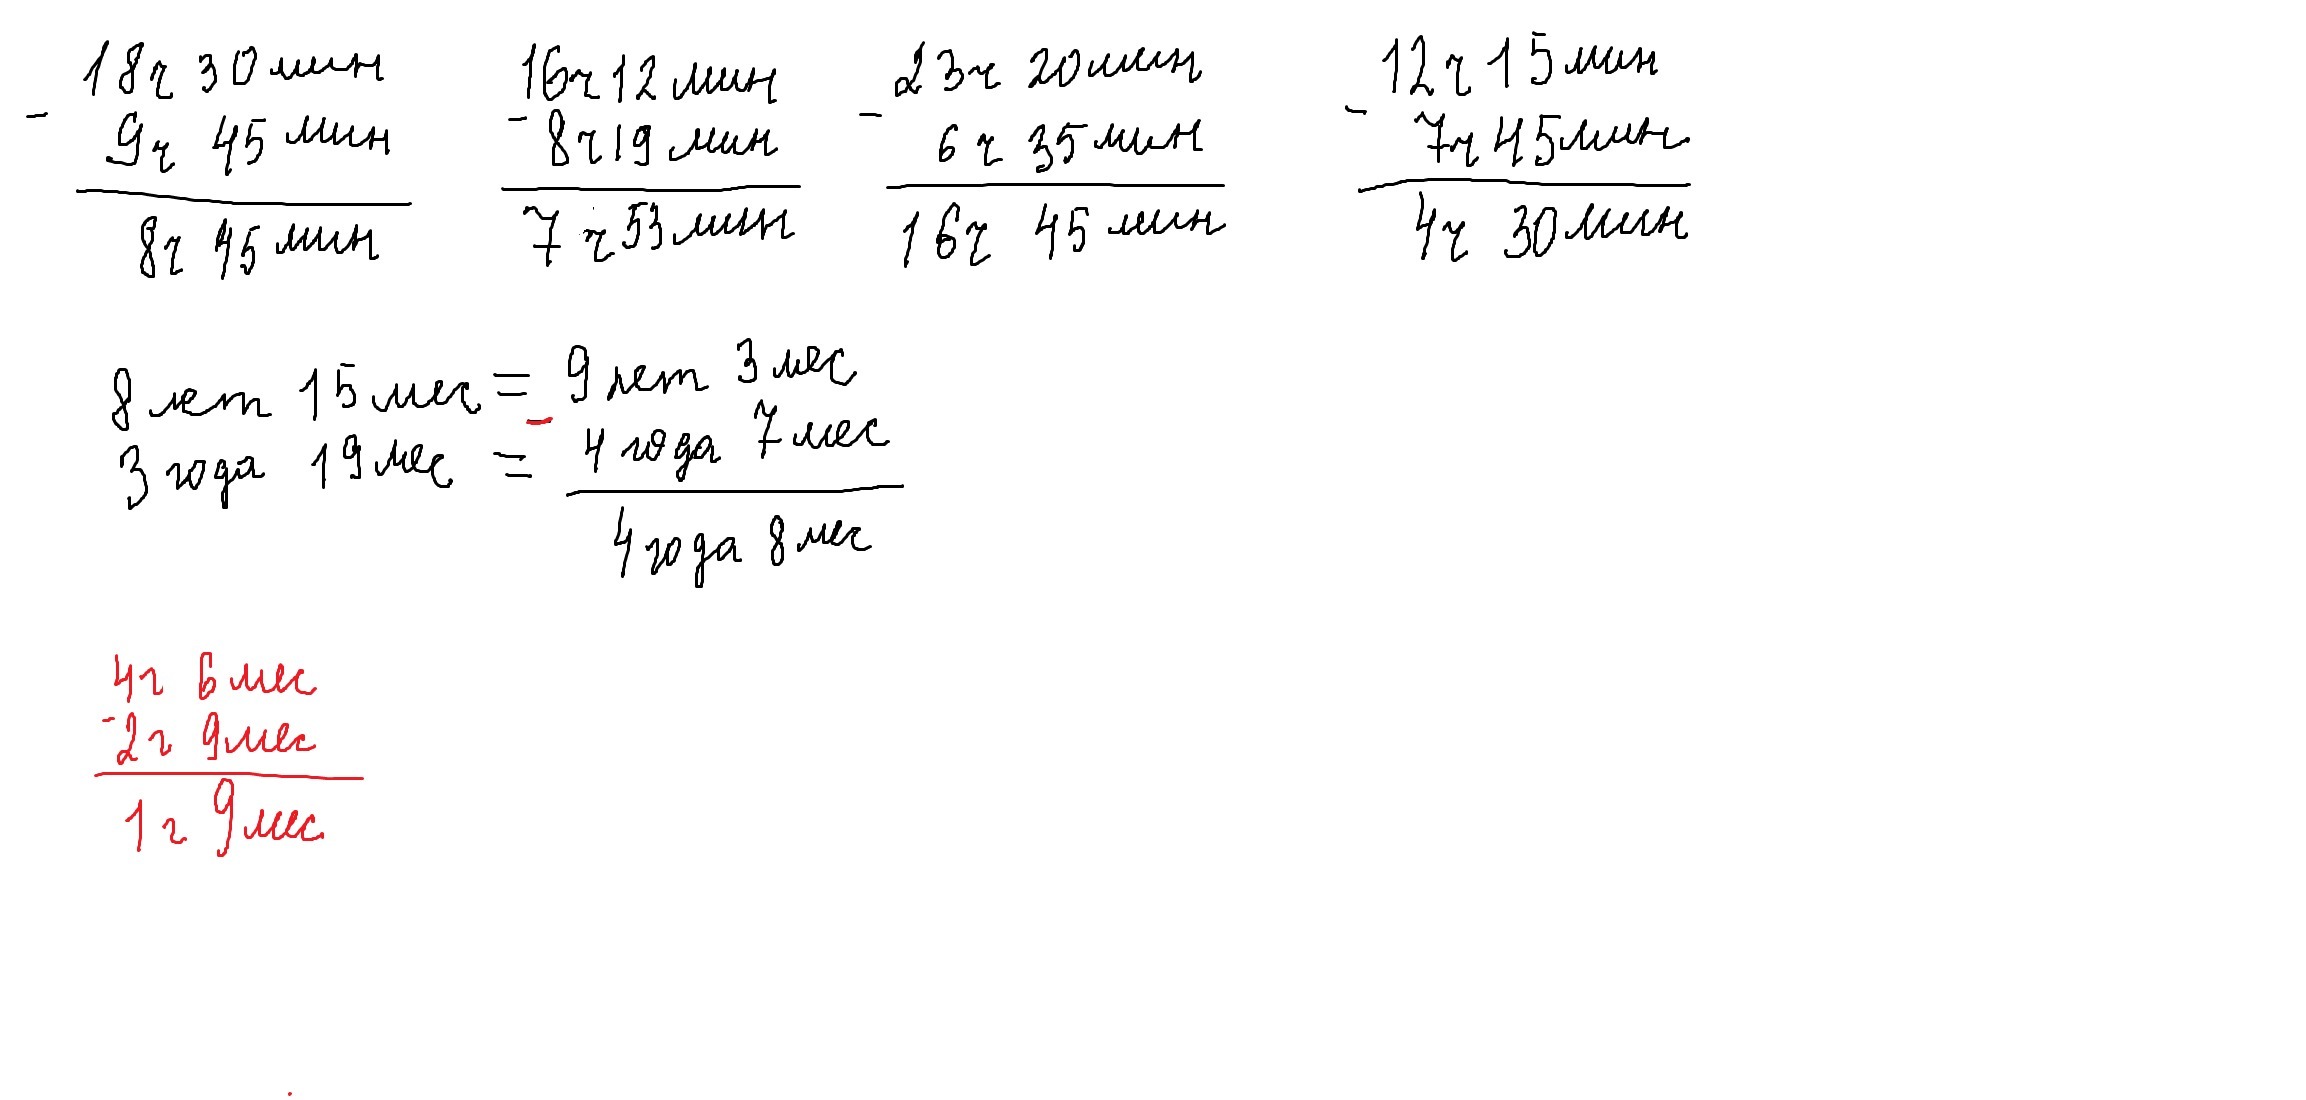 18ч 30мин
- 9ч 45 мин
8ч 45 мин
16ч 12 мин
- 8ч 19 мин
7 ч 53 мин
23ч 20мин
- 6ч 35мин
16ч 45 мин
12ч 15мин
- 7ч 45мин
4ч 30мин
8 лет 15 мес = 9 лет 3 мес
-
3 года 19 мес = 4 года 7 мес
4 года 8 мес
4г 6 мес
- 2г 9мес
1г 9мес